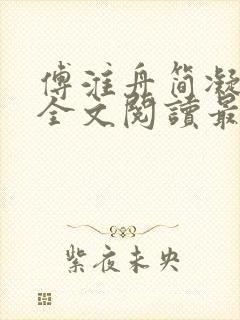 傅淮舟简凝
全文閱讀最
紫夜未央